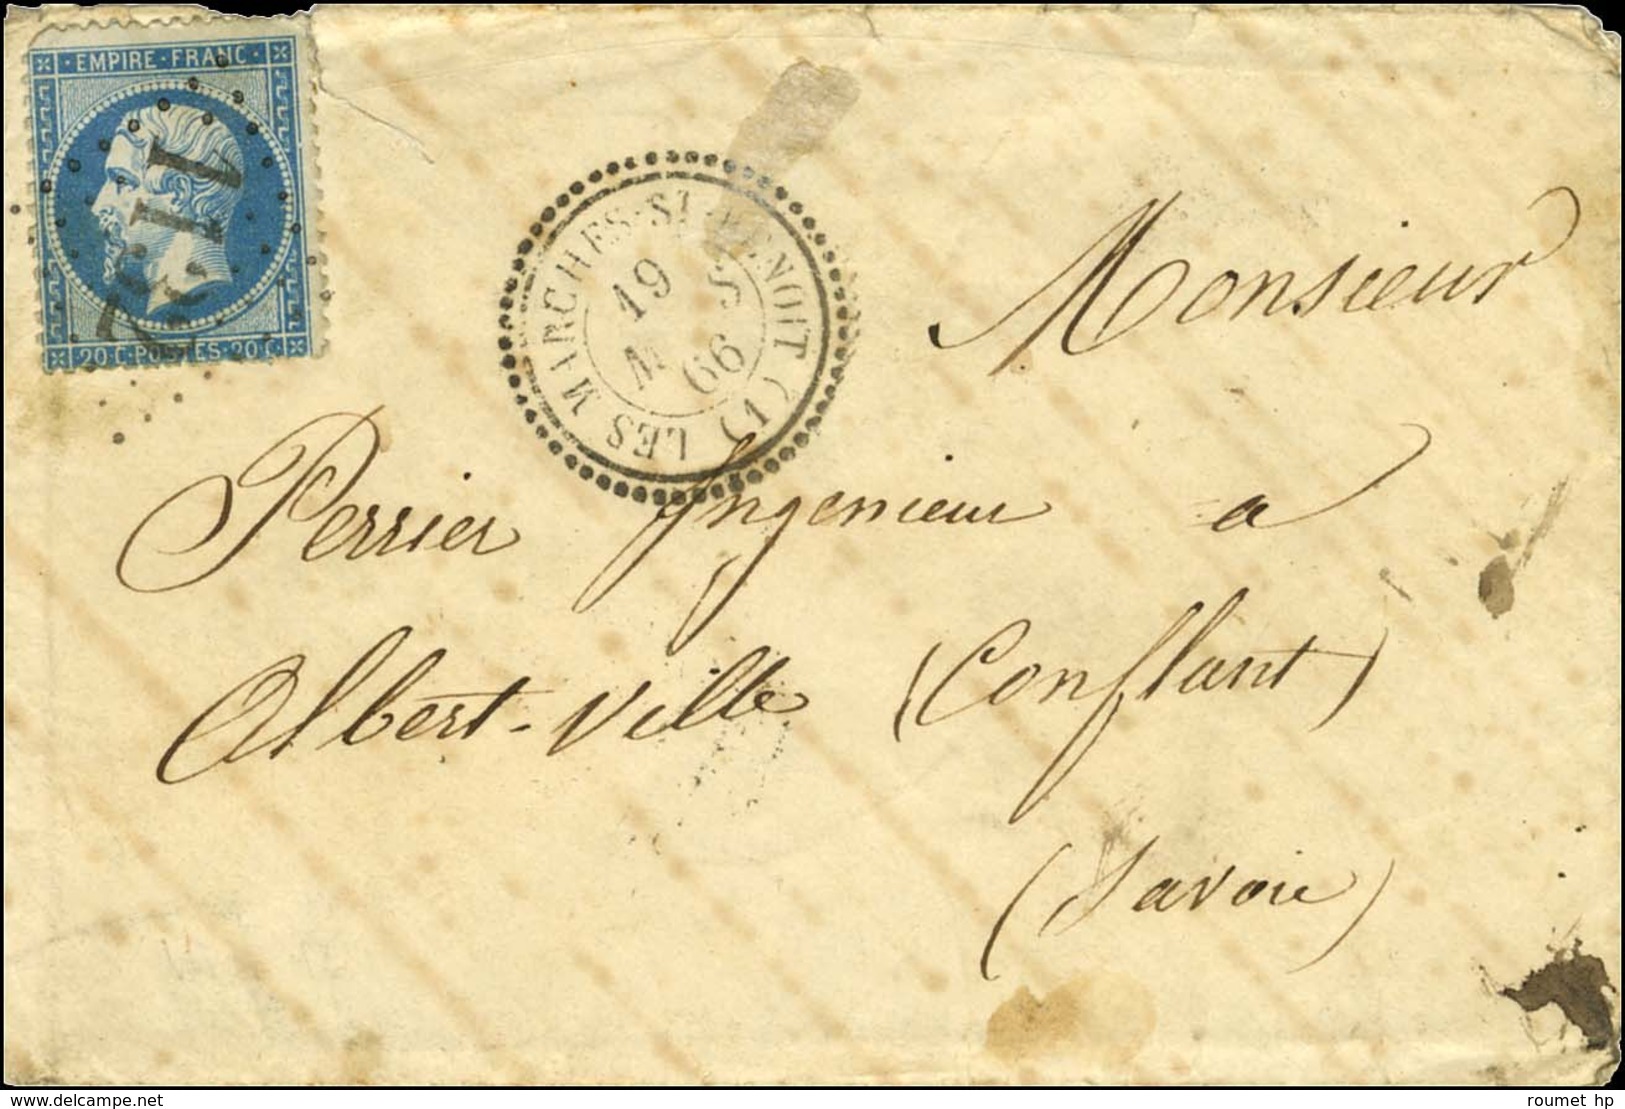 EMPIRE·FRANC·
1132
20 C·POSTES·20 C
LES MARCHES-ST-BENOIT (1)
19
MS
66
Monsieur
Perrier Ingenieur a
Albert-Ville (Conflant)
(Savoie)
delcampe.net
roumet hp